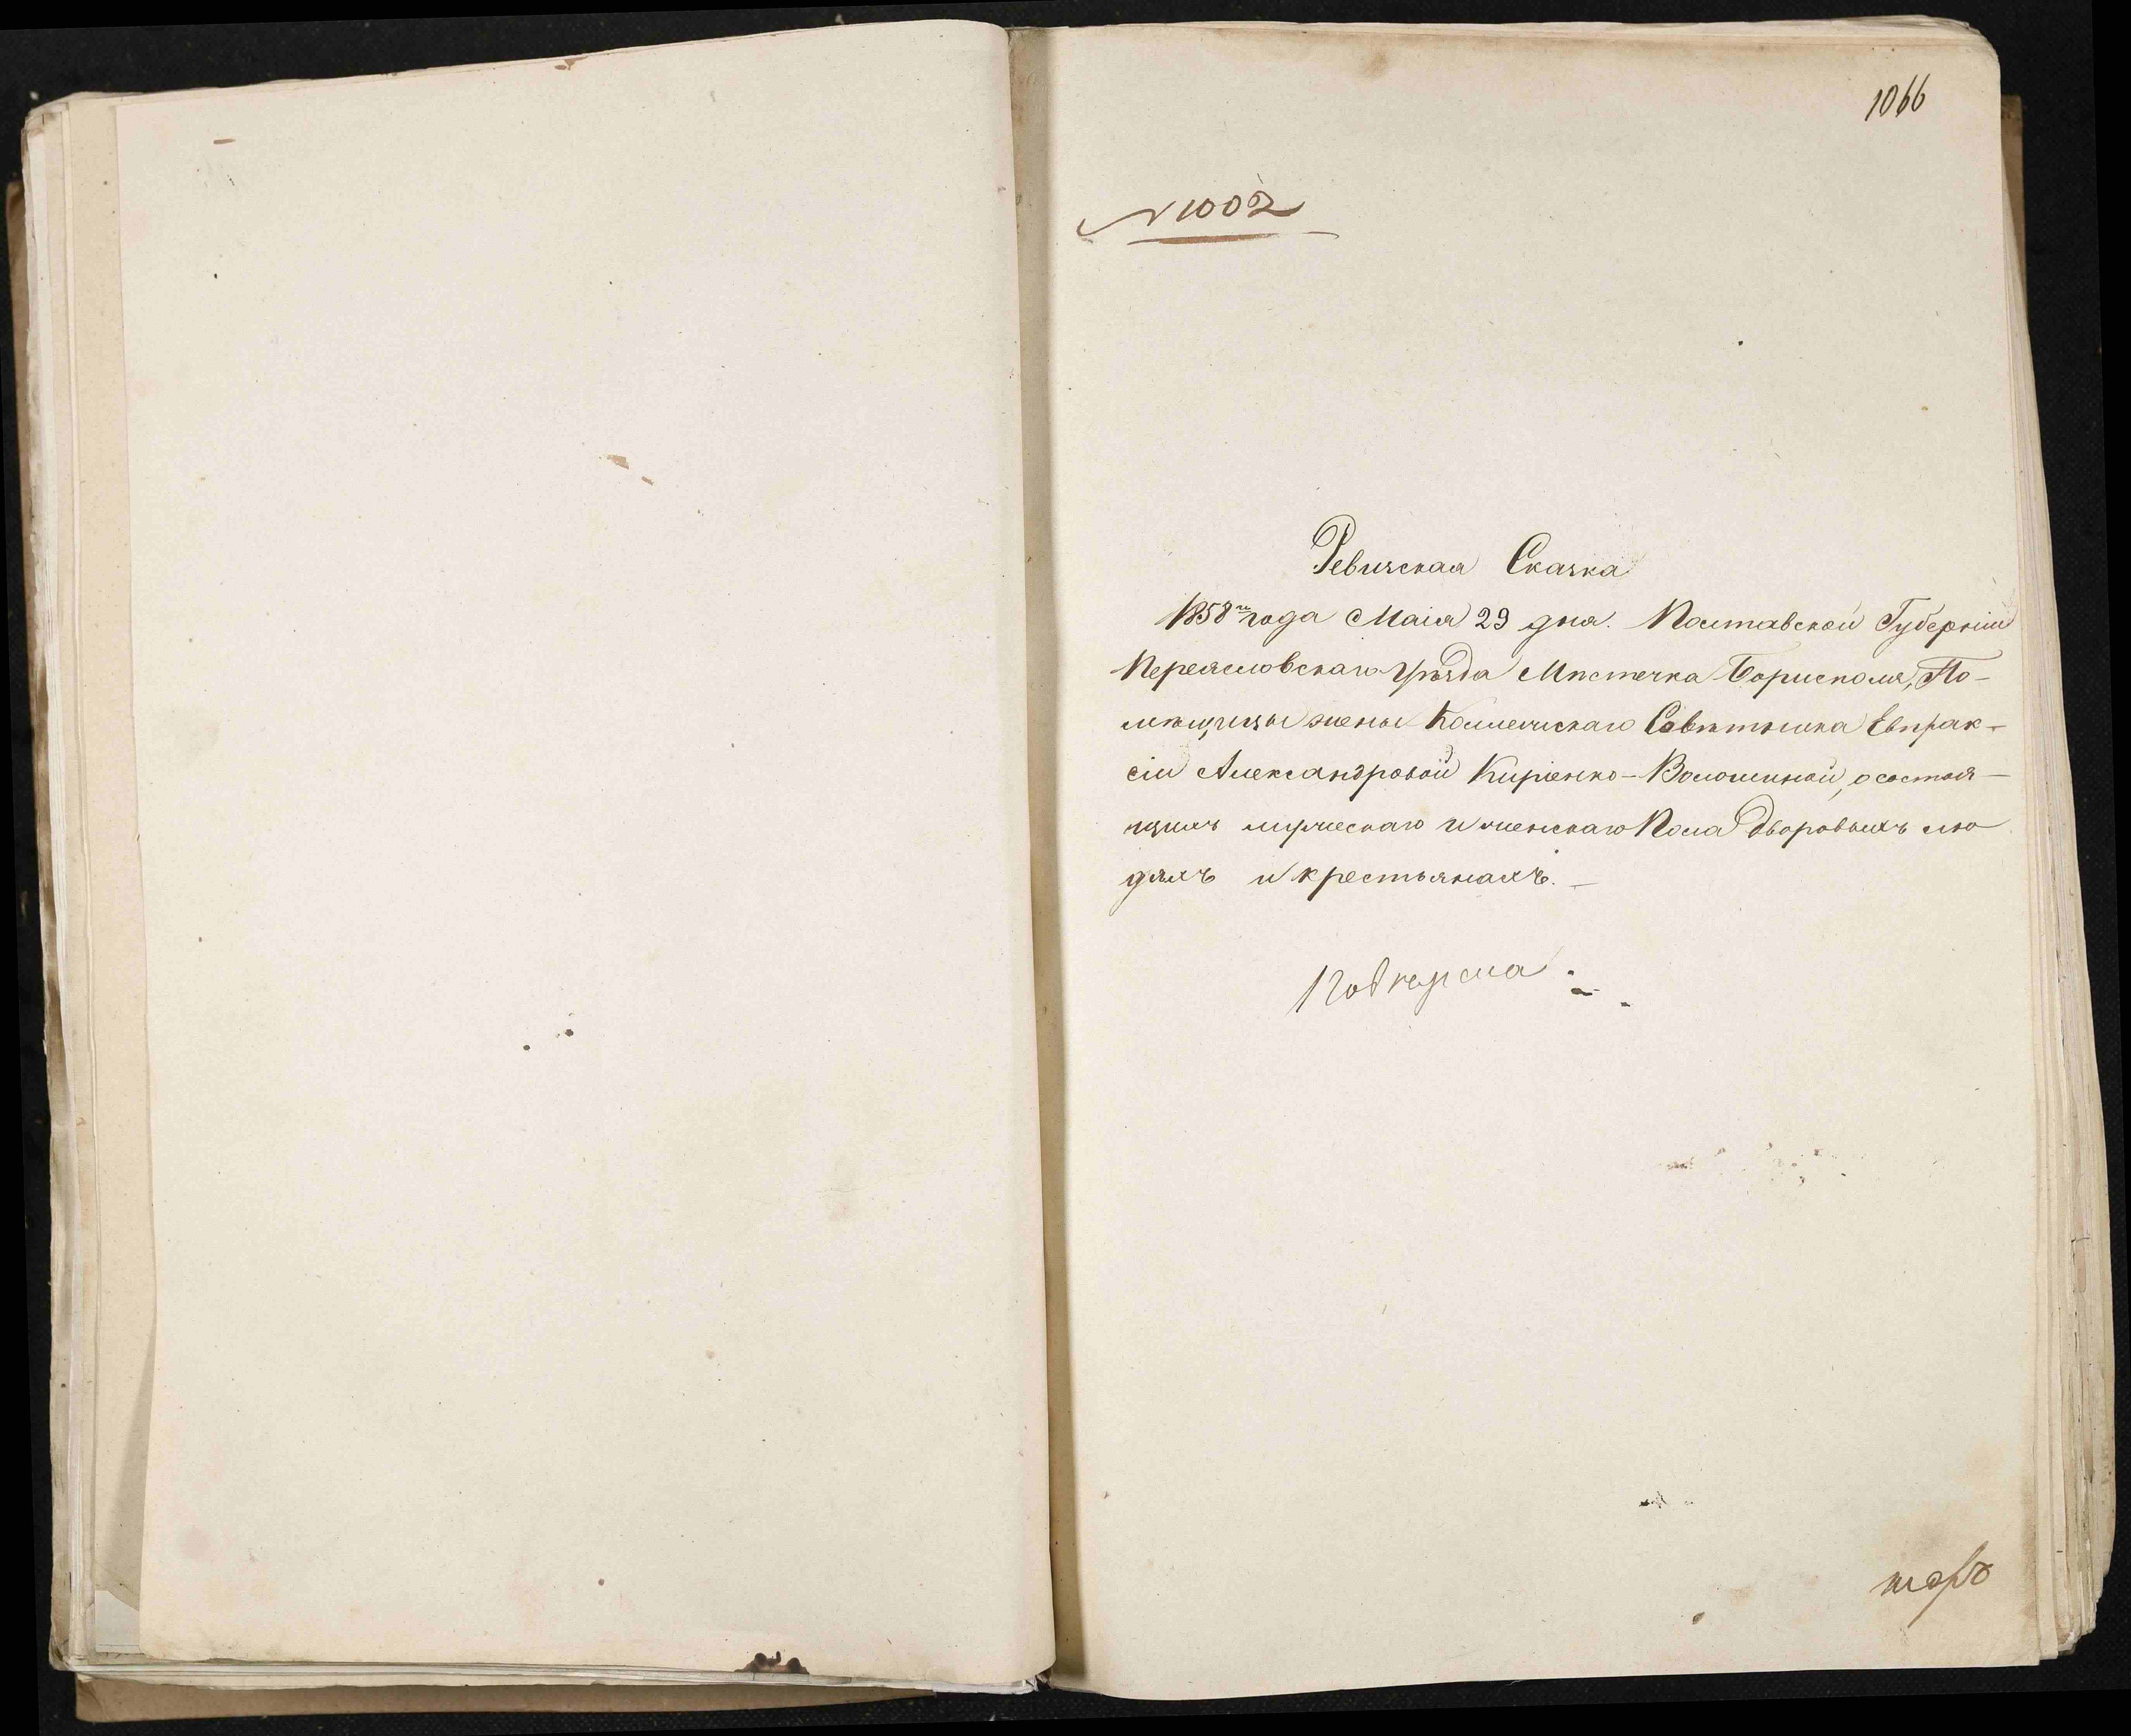 1066
N 1002
Ревизская Сказка
1858го года Маія 29 дня. Полтавской Губерніи
Переясловскаго Уѣзда Мѣстечка Борисполя, По-
мѣщицы жены Коллежскаго Совѣтника Евпрак-
сіи Александровой Киріенко-Волошиной, о состоя-
щихъ мужескаго и женскаго пола дворовыхъ лю
дяхъ и крестьянахъ. -